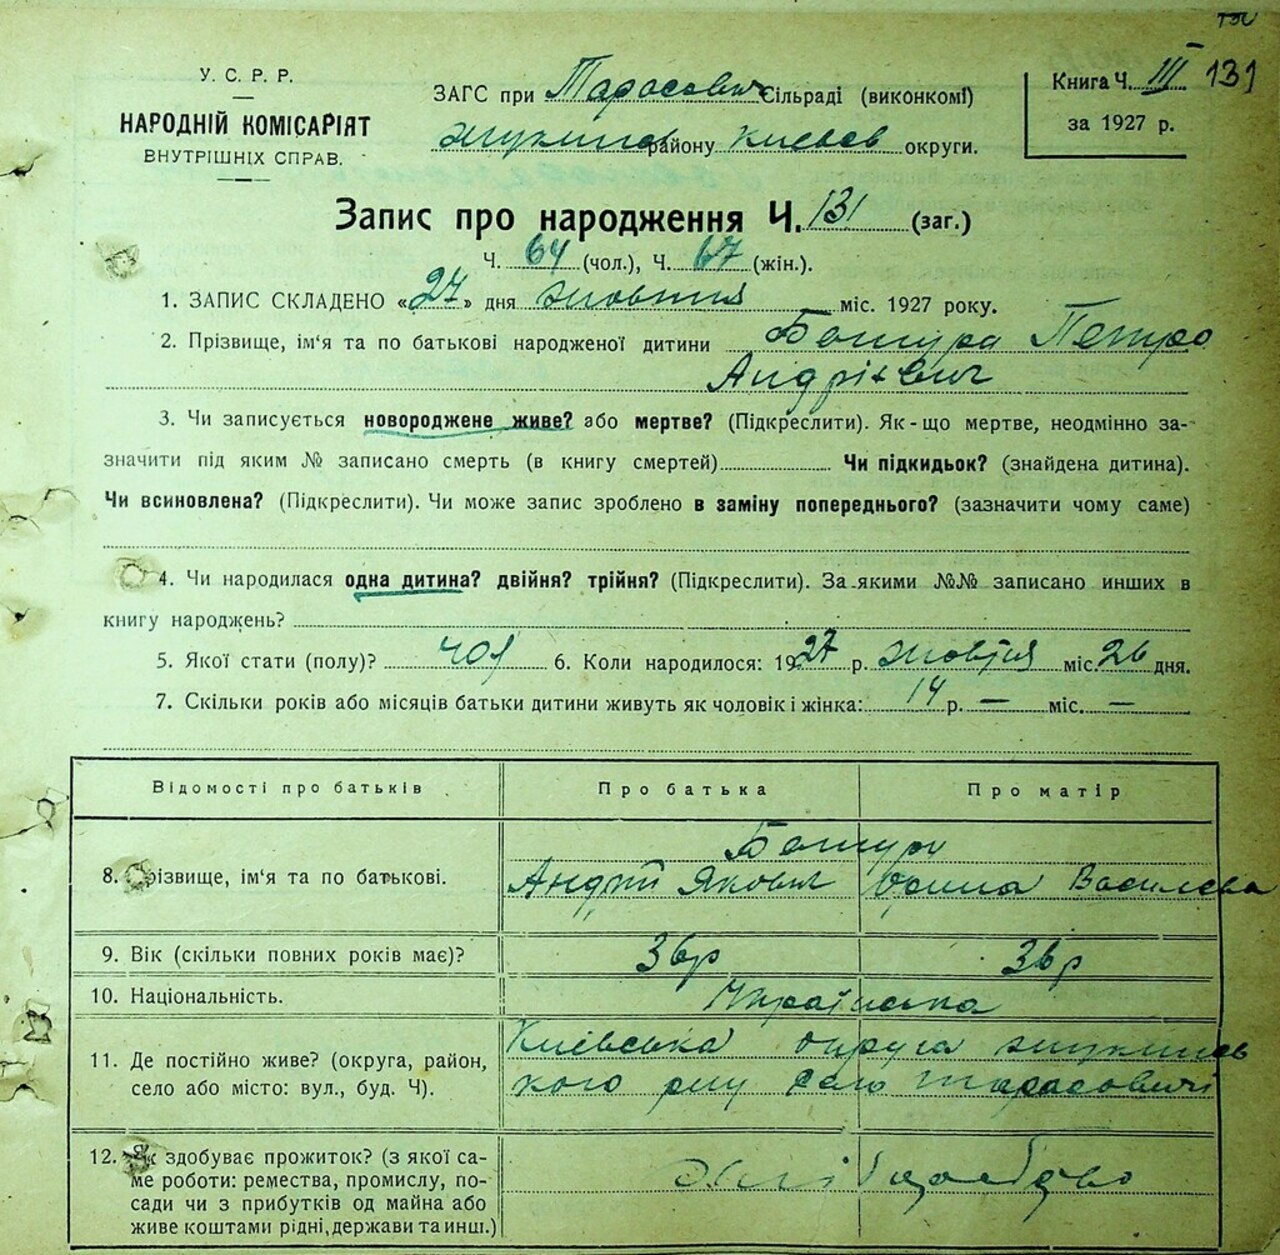 У. С. Р. Р.
НАРОДНІЙ КОМІСАРІЯТ
ВНУТРІШНІХ СПРАВ.
ЗАГС при Тарасович Сільраді (виконкомі)
району Києвс округи.
Книга Ч. III 131
за 1927 р.
Запис про народження Ч. 131 (заг.)
Ч. 64 (чол.), Ч. 67 (жін.).
1. ЗАПИС СКЛАДЕНО «27» дня жовтня міс. 1927 року.
2. Прізвище, ім'я та по батькові народженої дитини Петро
Андрієвич
3. Чи записується новороджене живе? або мертве? (Підкреслити). Як-що мертве, неодмінно за-
значити під яким № записано смерть (в книгу смертей) Чи підкидьок? (знайдена дитина).
Чи всиновлена? (Підкреслити). Чи може запис зроблено в заміну попереднього? (зазначити чому саме)
4. Чи народилася одна дитина? двійня? трійня? (Підкреслити). За якими №№ записано инших в
книгу народжень?
5. Якої стати (полу)? чол 6. Коли народилося: 1927 р. жовтня міс. 26 дня.
7. Скільки років або місяців батьки дитини живуть як чоловік і жінка: 14 р. — міс. —
Відомості про батьків Про батька Про матір
8. Прізвище, ім'я та по батькові. Андрій Якович Орина Василєва
9. Вік (скільки повних років має)? 36р 36р
10. Національність. Українська
11. Де постійно живе? (округа, район,
село або місто: вул., буд. Ч).
Київська округа
кого рну село Тарасовичі
12. Як здобуває прожиток? (з якої са-
ме роботи: ремества, промислу, по-
сади чи з прибутків од майна або
живе коштами рідні, держави та инш.)